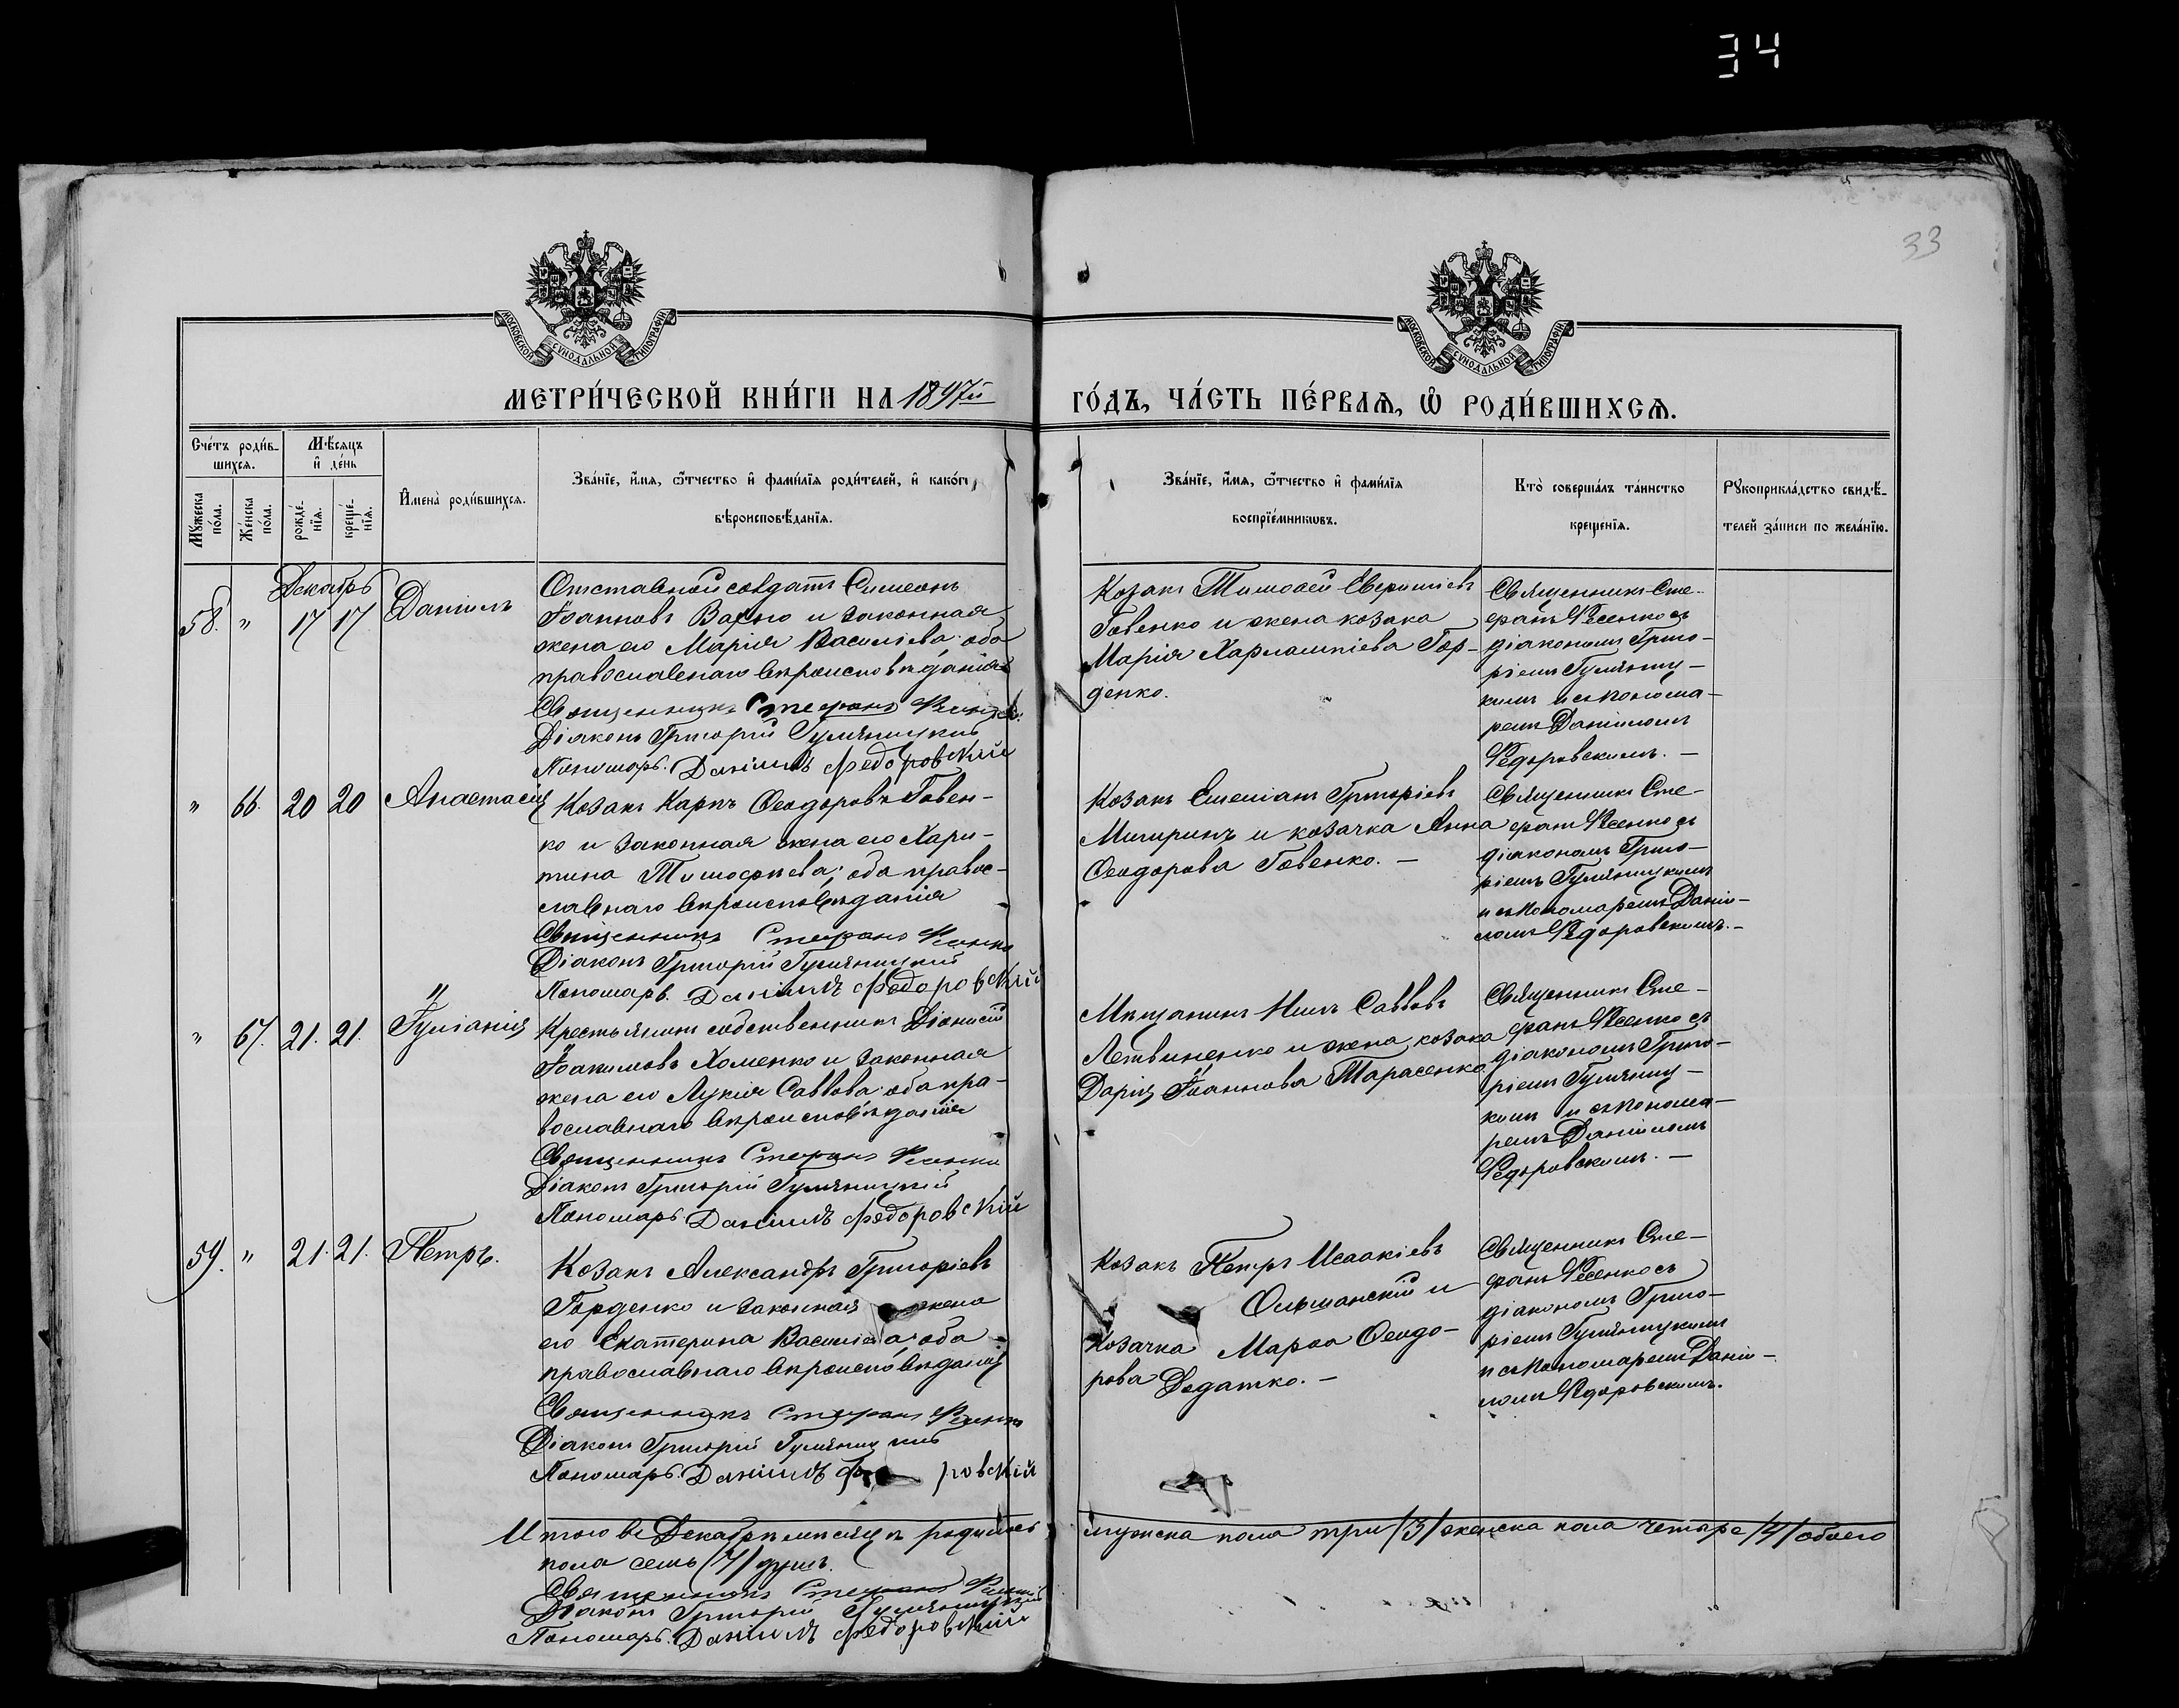 34
33
МОСКОВСКОЙ СѴНОДАЛЬНОЙ ТИПОГРАФІИ
МОСКОВСКОЙ СѴНОДАЛЬНОЙ ТИПОГРАФІИ
МЕТРИ́ЧЕСКОЙ КНИ́ГИ НА 1897й
ГО́ДЪ, ЧА́СТЬ ПЕ́РВАѦ, Ѡ҆ РОДИ́ВШИХСѦ.
Сче́тъ роди́в-
шихсѧ.
Мꙋ́жеска по́ла.
Же́нска по́ла.
Мѣ́сѧцъ
и҆ де́нь
рожде́-
нїѧ.
креще́-
нїѧ.
И҆мена̀ роди́вшихсѧ.
Зва́нїе, и҆́мѧ, ѻ҆́тчество и҆ фами́лїѧ роди́телей, и҆ како́гѡ
вѣроисповѣ́данїѧ.
Зва́нїе, и҆́мѧ, ѻ҆́тчество и҆ фами́лїѧ
воспрїе́мникѡвъ.
Кто̀ соверша́лъ та́инство
креще́нїѧ.
Рꙋкоприкла́дство свидѣ́-
телей за́писи по жела́нїю.
Декабрь
58. " 17 17 Даніилъ
Отставной солдатъ Симеонъ
Іоанновъ и законная
жена его Марія Василіева; оба
православнаго вѣроисповѣданія
Священникъ Стефанъ Фесенко
Діаконъ Григорій Гуляницкій
Пономарь Даніилъ Федоровскій
Козакъ Тимоѳей
Говенко и жена козака
Марія Харлампіева Гор-
денко.
Священникъ Сте-
фанъ Фесенко съ
діакономъ Григо-
ріемъ Гуляниц-
кимъ и съ понома-
ремъ Даніиломъ
Федоровскимъ. —
" 66. 20 20 Анастасія
Козакъ Карпъ Ѳеодоровъ Говен-
ко и законная жена его Хари-
тина Тимоѳеева; оба правос-
славнаго вѣроисповѣданія
Священникъ Стефанъ Фесенко
Діаконъ Григорій Гуляницкій
Пономарь Даніилъ Федоровскій
Козакъ Емеліанъ Григоріевъ
и козачка Анна
Ѳеодорова Говенко. —
Священникъ Сте-
фанъ Фесенко съ
діакономъ Григо-
ріемъ Гуляницкимъ
и съ пономаремъ Даніи-
ломъ Федоровскимъ. —
" 67. 21. 21. Іуліанія
Крестьянинъ собственникъ Діонисій
Іоакимовъ Хоменко и законная
жена его Лукія Саввова; оба пра-
вославнаго вѣроисповѣданія
Священникъ Стефанъ Фесенко
Діаконъ Григорій Гуляницкій
Пономарь Даніилъ Федоровскій
Мѣщанинъ Нилъ Саввовъ
Летвиненко и жена козака
Дарія Іоаннова Тарасенко
Священникъ Сте-
фанъ Фесенко съ
діакономъ Григо-
ріемъ Гуляниц-
кимъ и съ понома-
ремъ Даніиломъ
Федоровскимъ. —
59. " 21. 21. Петръ.
Козакъ Александръ Григоріевъ
Горденко и законная жена
его Екатерина Василіева; оба
православнаго вѣроисповѣданія
Священникъ Стефанъ Фесенко
Діаконъ Григорій Гуляницкій
Пономарь Даніилъ Ф ровскій
Козакъ Петръ Исаакіевъ
Ольшанскій и
козачка Марѳа Ѳеодо-
рова Дедатко. —
Священникъ Сте-
фанъ Фесенко съ
діакономъ Григо-
ріемъ Гуляницкимъ
и съ пономаремъ Даніи-
ломъ Федоровскимъ.
Итого въ Декабрѣ мѣсяцѣ родилось мужска пола три /3/ женска пола четыре /4/ обоего
пола семь /7/ душъ.
Священникъ Стефанъ Фесенко
Діаконъ Григорій Гуляницкій
Пономарь Даніилъ Федоровскій